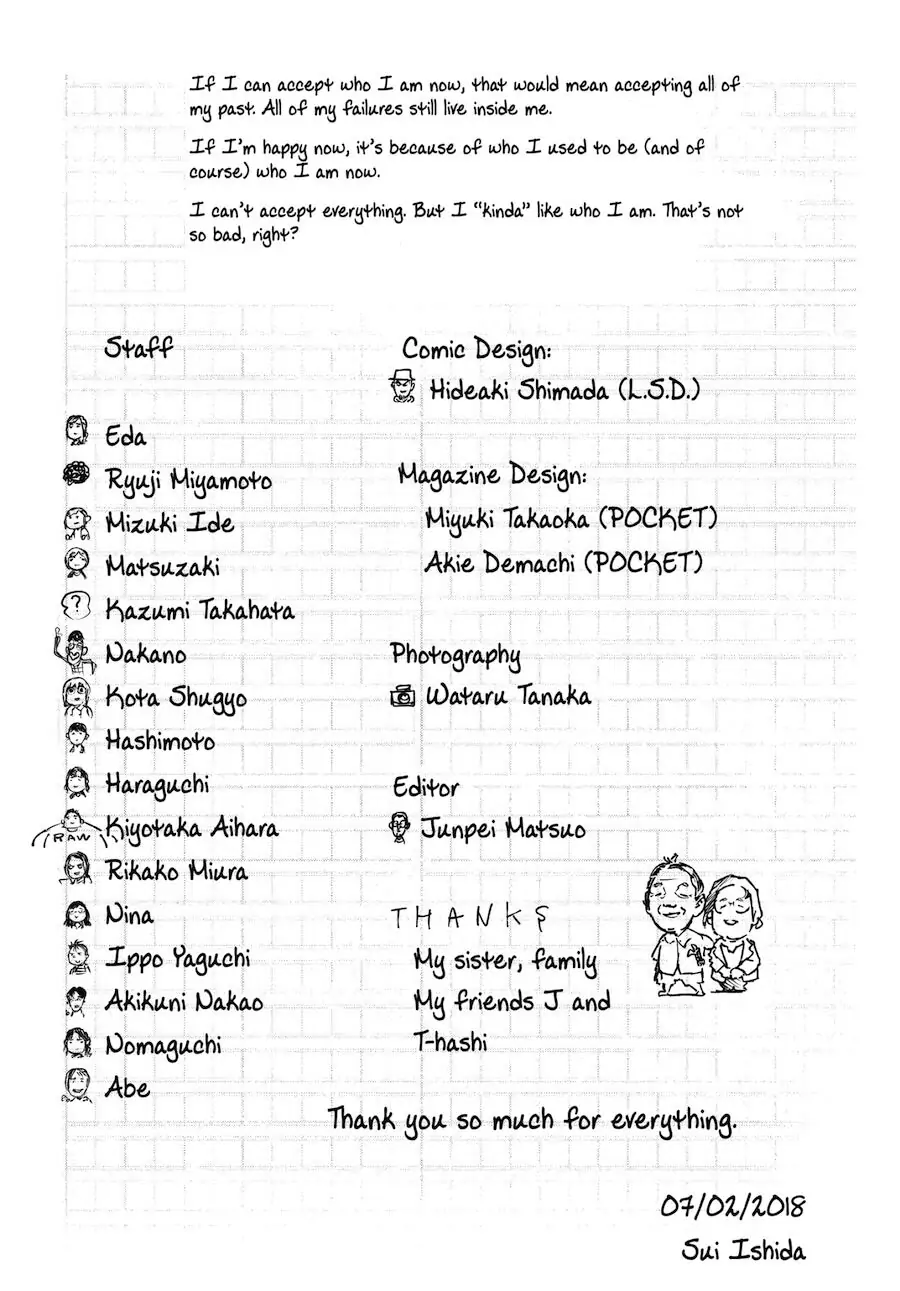 If I can accept who I am now, that would mean accepting all of
my past. All of my failures still live inside me.
If I'm happy now, it's because of who I used to be (and of
course) who I am now.
I can't accept everything. But I "kinda" like who I am. That's not
so bad, right?
Staff
Eda
Ryuji Miyamoto
Mizuki Ide
Matsuzaki
?
Kazumi Takahata
Nakano
Kota Shugyo
Hashimoto
Haraguchi
RAW
Kiyotaka Aihara
Rikako Miura
Nina
Ippo Yaguchi
Akikuni Nakao
Nomaguchi
Abe
Comic Design:
Hideaki Shimada (L.S.D.)
Magazine Design:
Miyuki Takaoka (POCKET)
Akie Demachi (POCKET)
Photography
Wataru Tanaka
Editor
Junpei Matsuo
THANKS
My sister, family
My friends J and
T-hashi
Thank you so much for everything.
07/02/2018
Sui Ishida